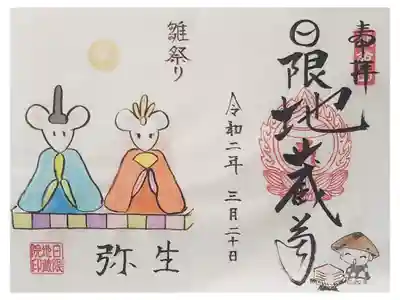 奉拝
日限地蔵尊
令和二年 三月二十日
雛祭り
弥生
日限
地蔵
院印